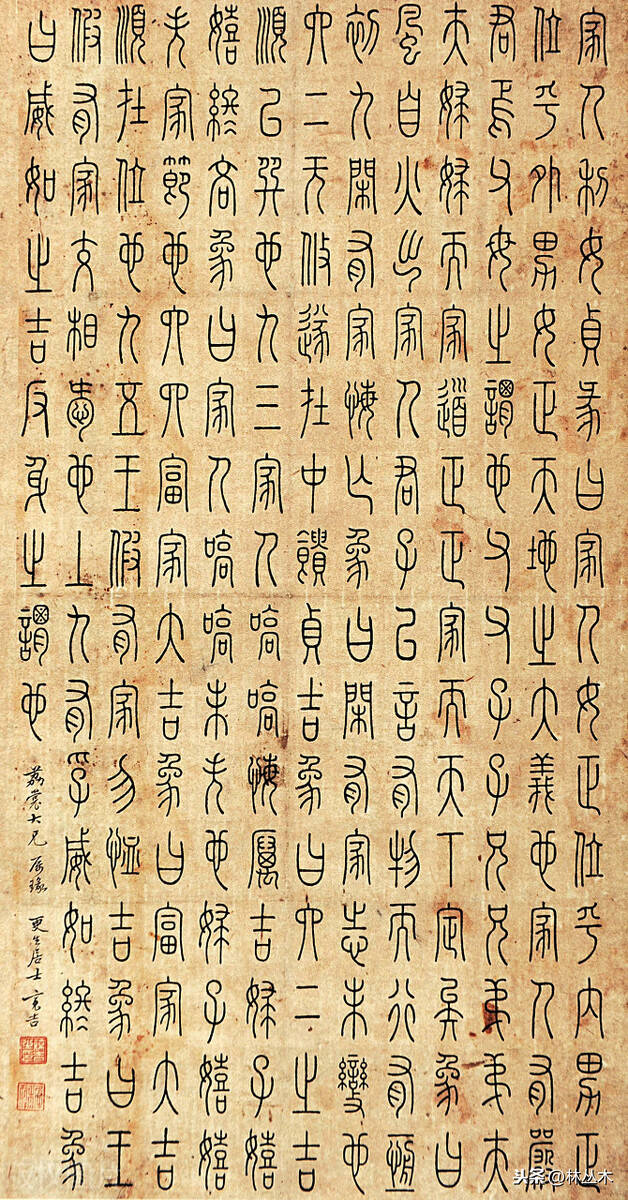 家人利女貞彖曰家人女正位乎内男正
位乎外男女正天地之大義也家人有嚴
君焉父母之謂也父父子子兄兄弟弟夫
夫婦婦而家道正正家而天下定矣象曰
風自火出家人君子以言有物而行有恒
初九閑有家悔亡象曰閑有家志未變也
六二无攸遂在中饋貞吉象曰六二之吉
順以巽也九三家人嗃嗃悔厲吉婦子嬉
嬉終吝象曰家人嗃嗃未失也婦子嬉嬉
失家節也六四富家大吉象曰富家大吉
順在位也九五王假有家勿恤吉象曰王
假有家交相愛也上九有孚威如終吉象
曰威如之吉反身之謂也
荔裳大兄属 更生居士亮吉
头条@林丛木